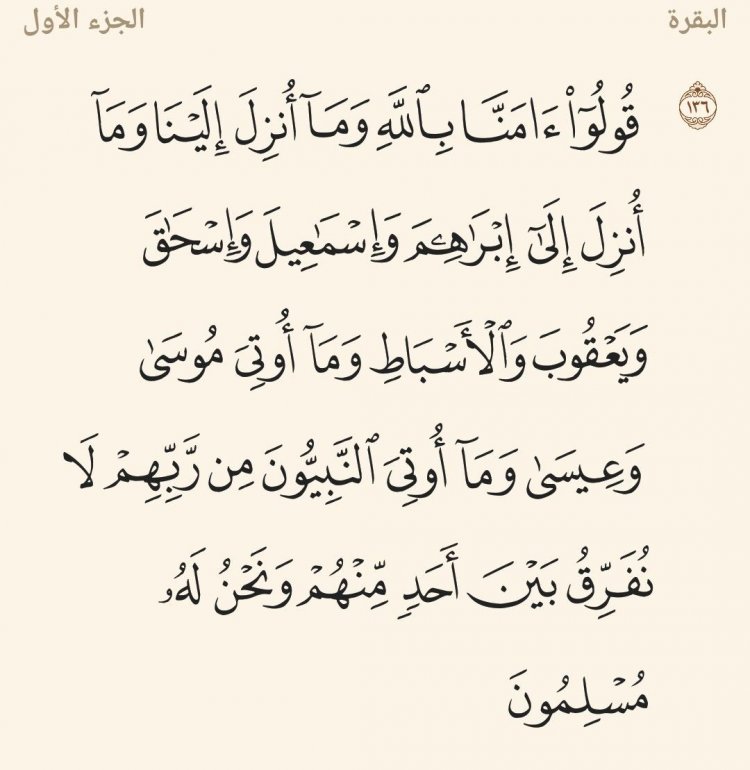 البقرة
الجزء الأول
١٣٦
قُولُوٓا۟ ءَامَنَّا بِٱللَّهِ وَمَآ أُنزِلَ إِلَيْنَا وَمَآ
أُنزِلَ إِلَىٰٓ إِبْرَٰهِـۧمَ وَإِسْمَٰعِيلَ وَإِسْحَٰقَ
وَيَعْقُوبَ وَٱلْأَسْبَاطِ وَمَآ أُوتِىَ مُوسَىٰ
وَعِيسَىٰ وَمَآ أُوتِىَ ٱلنَّبِيُّونَ مِن رَّبِّهِمْ لَا
نُفَرِّقُ بَيْنَ أَحَدٍ مِّنْهُمْ وَنَحْنُ لَهُۥ
مُسْلِمُونَ